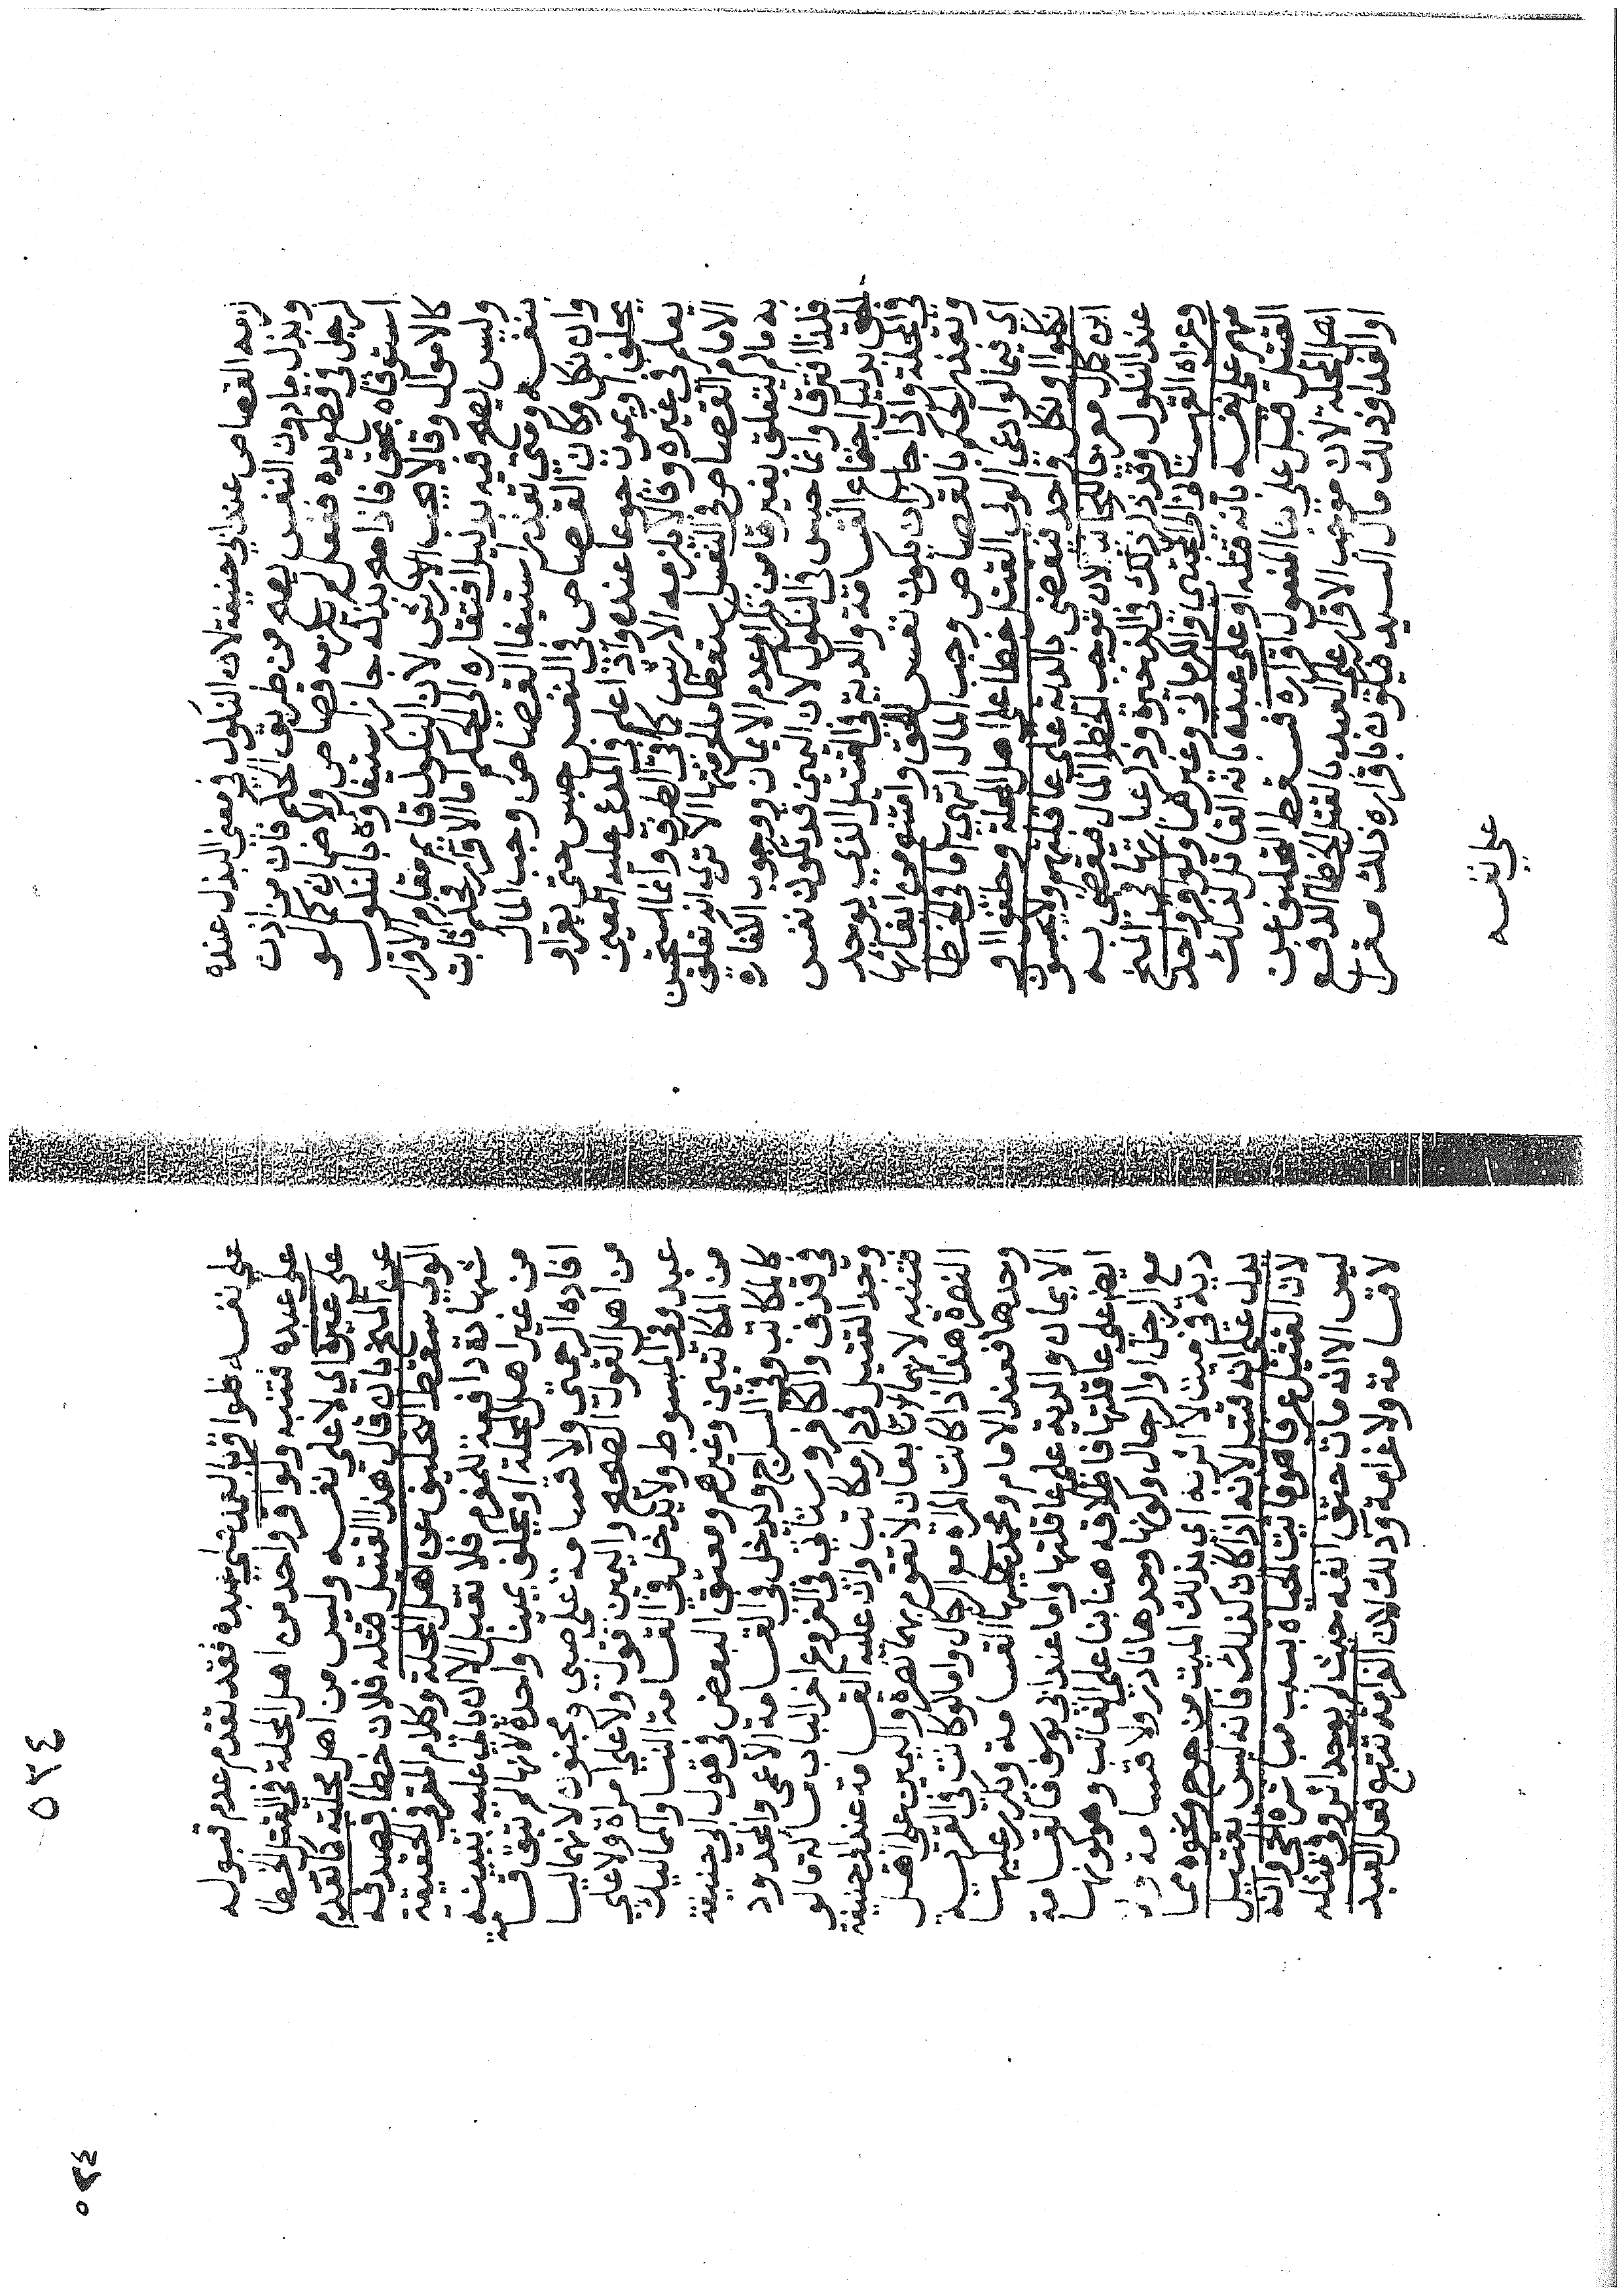 لزمه القصاص عند ابي حنيفة لان النكول في معنى البذل عنده
وبذل مادون النفس يصح من طريق الحكم فان من اذن
لرجل في قطع يده ففعل لم يلزمه قصاص ولا ضمان كما لو
استوفاه بحق فاذا صح بذله جاز استيفاوه بالنكول
كالاموال وقالا يجب الارش لان النكول قايم مقام الاقرار
وليس يصح فيه بدليل افتقاره الى الحكم اما الاقرار فحكم ثابت
بنفسه ومتى تعذر استيفا القصاص وجب المال
وان نكل وكان القصاص في النفس حبس حتى يقر او
يحلف او يموت جوعا عنده واذا علم في المدعى عليه المعين
يعلم في غيره وقالا يلزمه الارش كما في الطرف وانما استحسن
الامام القصاص في النفس استعظاما لحرمتها الا ترى انه تعلق
به مالم يتعلق بغيرها من عدم الايمان ووجوب الكفاره
فلذا افترقا وانما حبس في النكول لان اليمين قد تكون نفس
الحق بدليل اجتماع القسامة والدية في القتيل الذي يوجد
في المحلة واذا جاز ان يكون نفس الحق وامتنع من ايفائها
وتعذر الحكم بالقصاص وجب المال انتهى اما في الخطا
اي فيما لو ادعى الولي القتل خطا على اهل المحلة وحلفوا او
نكلوا او نكل واحد فيقضى بالدية على عاقلتهم ولا يحبسون
ابن كمال معزيا للخانية لان موجب الخطا المال فيقضى به
عند النكول وقد ذكر ذلك في الذخيرة وذكر عبارتها في المنح
وعزاه القهستاني الى المجتبى والكرماني وغيرهما ولو اقر واحد
منهم على نفسه بانه قتله او على عبده بانه القاتل لذلك
القتيل قبل على بنا المفعول اقراره فسقط التحليف عن
اهل المحلة لان موجب الاقرار على العبد بالقتل الخطا الدفع
او الفدا وذلك مال السيد فيكون باقراره ذلك مقرا
على نفسه
٥٣٤
على نفسه ظهوا قتل العمد على عبده فقد تقدم عدم قبوله
على عبده فتنبه ولو اقر واحد من اهل المحلة في القتل الخطا
على غيره اي لا على نفسه وليس من اهل محلته كما تقدم
عن المنح بان قال هذا القتيل قتله فلان خطا فصدقه
الولي سقط التحليف عن اهل المحلة وكلام المقر في الحقيقة
شهادة دافعه للمغرم فلا تقبل الا ان ياتي عليه ببينه
من غير اهل المحلة او يحلف يمينا واحدة لانها لم تبق قسامة
افاده الرحمتي ولا قسامة على صبي ومجنون لانهما ليسا
من اهل القول الصحيح واليمين قول ولا على امراة ولا على
عبد وفي المبسوط ولا يدخل في القسامة النسا والمماليك
من المكاتبين وغيرهم ومعتق البعض في قول ابي حنيفة
كالمكاتب وفي السراج ويدخل في القسامة الاعمى والمحدود
في قذف والكافر وسياتي في الفروع اخر الباب مسالة ما لو
وجد القتيل في دار مكاتب وان عليه القسامة عند ابي حنيفة
فتنبه لانهما تابعان لا تقوم بهما نصرة واليمين على اهل
النصرة هذا اذا كانت المراة مع الرجال واما لو كانت في القرية
وحدها فعند الامام ومحمد عليها القسامة وتكرر عليها
الايمان والدية على عاقلتها واما عند ابي يوسف فالقسامة
ايضا على عاقلتها فاطلاقه هنا بنا على الغالب وهو كونها
مع الرجل او الرجال وكونها وحدها نادر ولا قسامة ولا
دية في ميت لا اثر به اي بذلك الميت من جرح ونحوه مما
يدل على انه قتيل لانه اذا كان كذلك فانه ليس بقتيل
لان القتيل عرفا هو فائت الحياة بسبب مباشرة الحي وانه
ليس الا انه مات حتف انفه حيث لم يوجد اثر وفي مثله
لا قسامة ولا غرامة وذلك لان الغرامة تتبع فعل العبد
٥٣٤